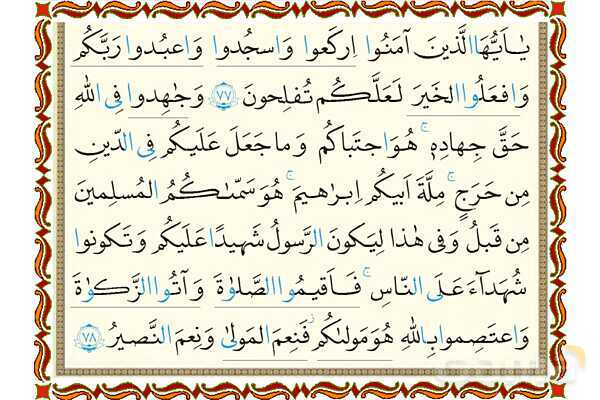 يٰاَيُّهَا الَّذينَ آمَنُوا اِركَعوا وَاسجُدوا وَاعبُدوا رَبَّكُم
وَافعَلُوا الخَيرَ لَعَلَّكُم تُفلِحونَ ﴿٧٧﴾ وَجٰهِدوا فِى اللهِ
حَقَّ جِهادِهٖ ۚ هُوَ اجتَباكُم وَما جَعَلَ عَلَيكُم فِى الدّينِ
مِن حَرَجٍ ۚ مِلَّةَ اَبيكُم اِبرٰهيمَ ۚ هُوَ سَمّىٰكُمُ المُسلِمينَ
مِن قَبلُ وَفى هٰذا لِيَكونَ الرَّسولُ شَهيدًا عَلَيكُم وَتَكونوا
شُهَدآءَ عَلَى النّاسِ ۚ فَاَقيمُوا الصَّلوٰةَ وَآتُوا الزَّكوٰةَ
وَاعتَصِموا بِاللهِ هُوَ مَولىٰكُم ۖ فَنِعمَ المَولىٰ وَنِعمَ النَّصيرُ ﴿٧٨﴾